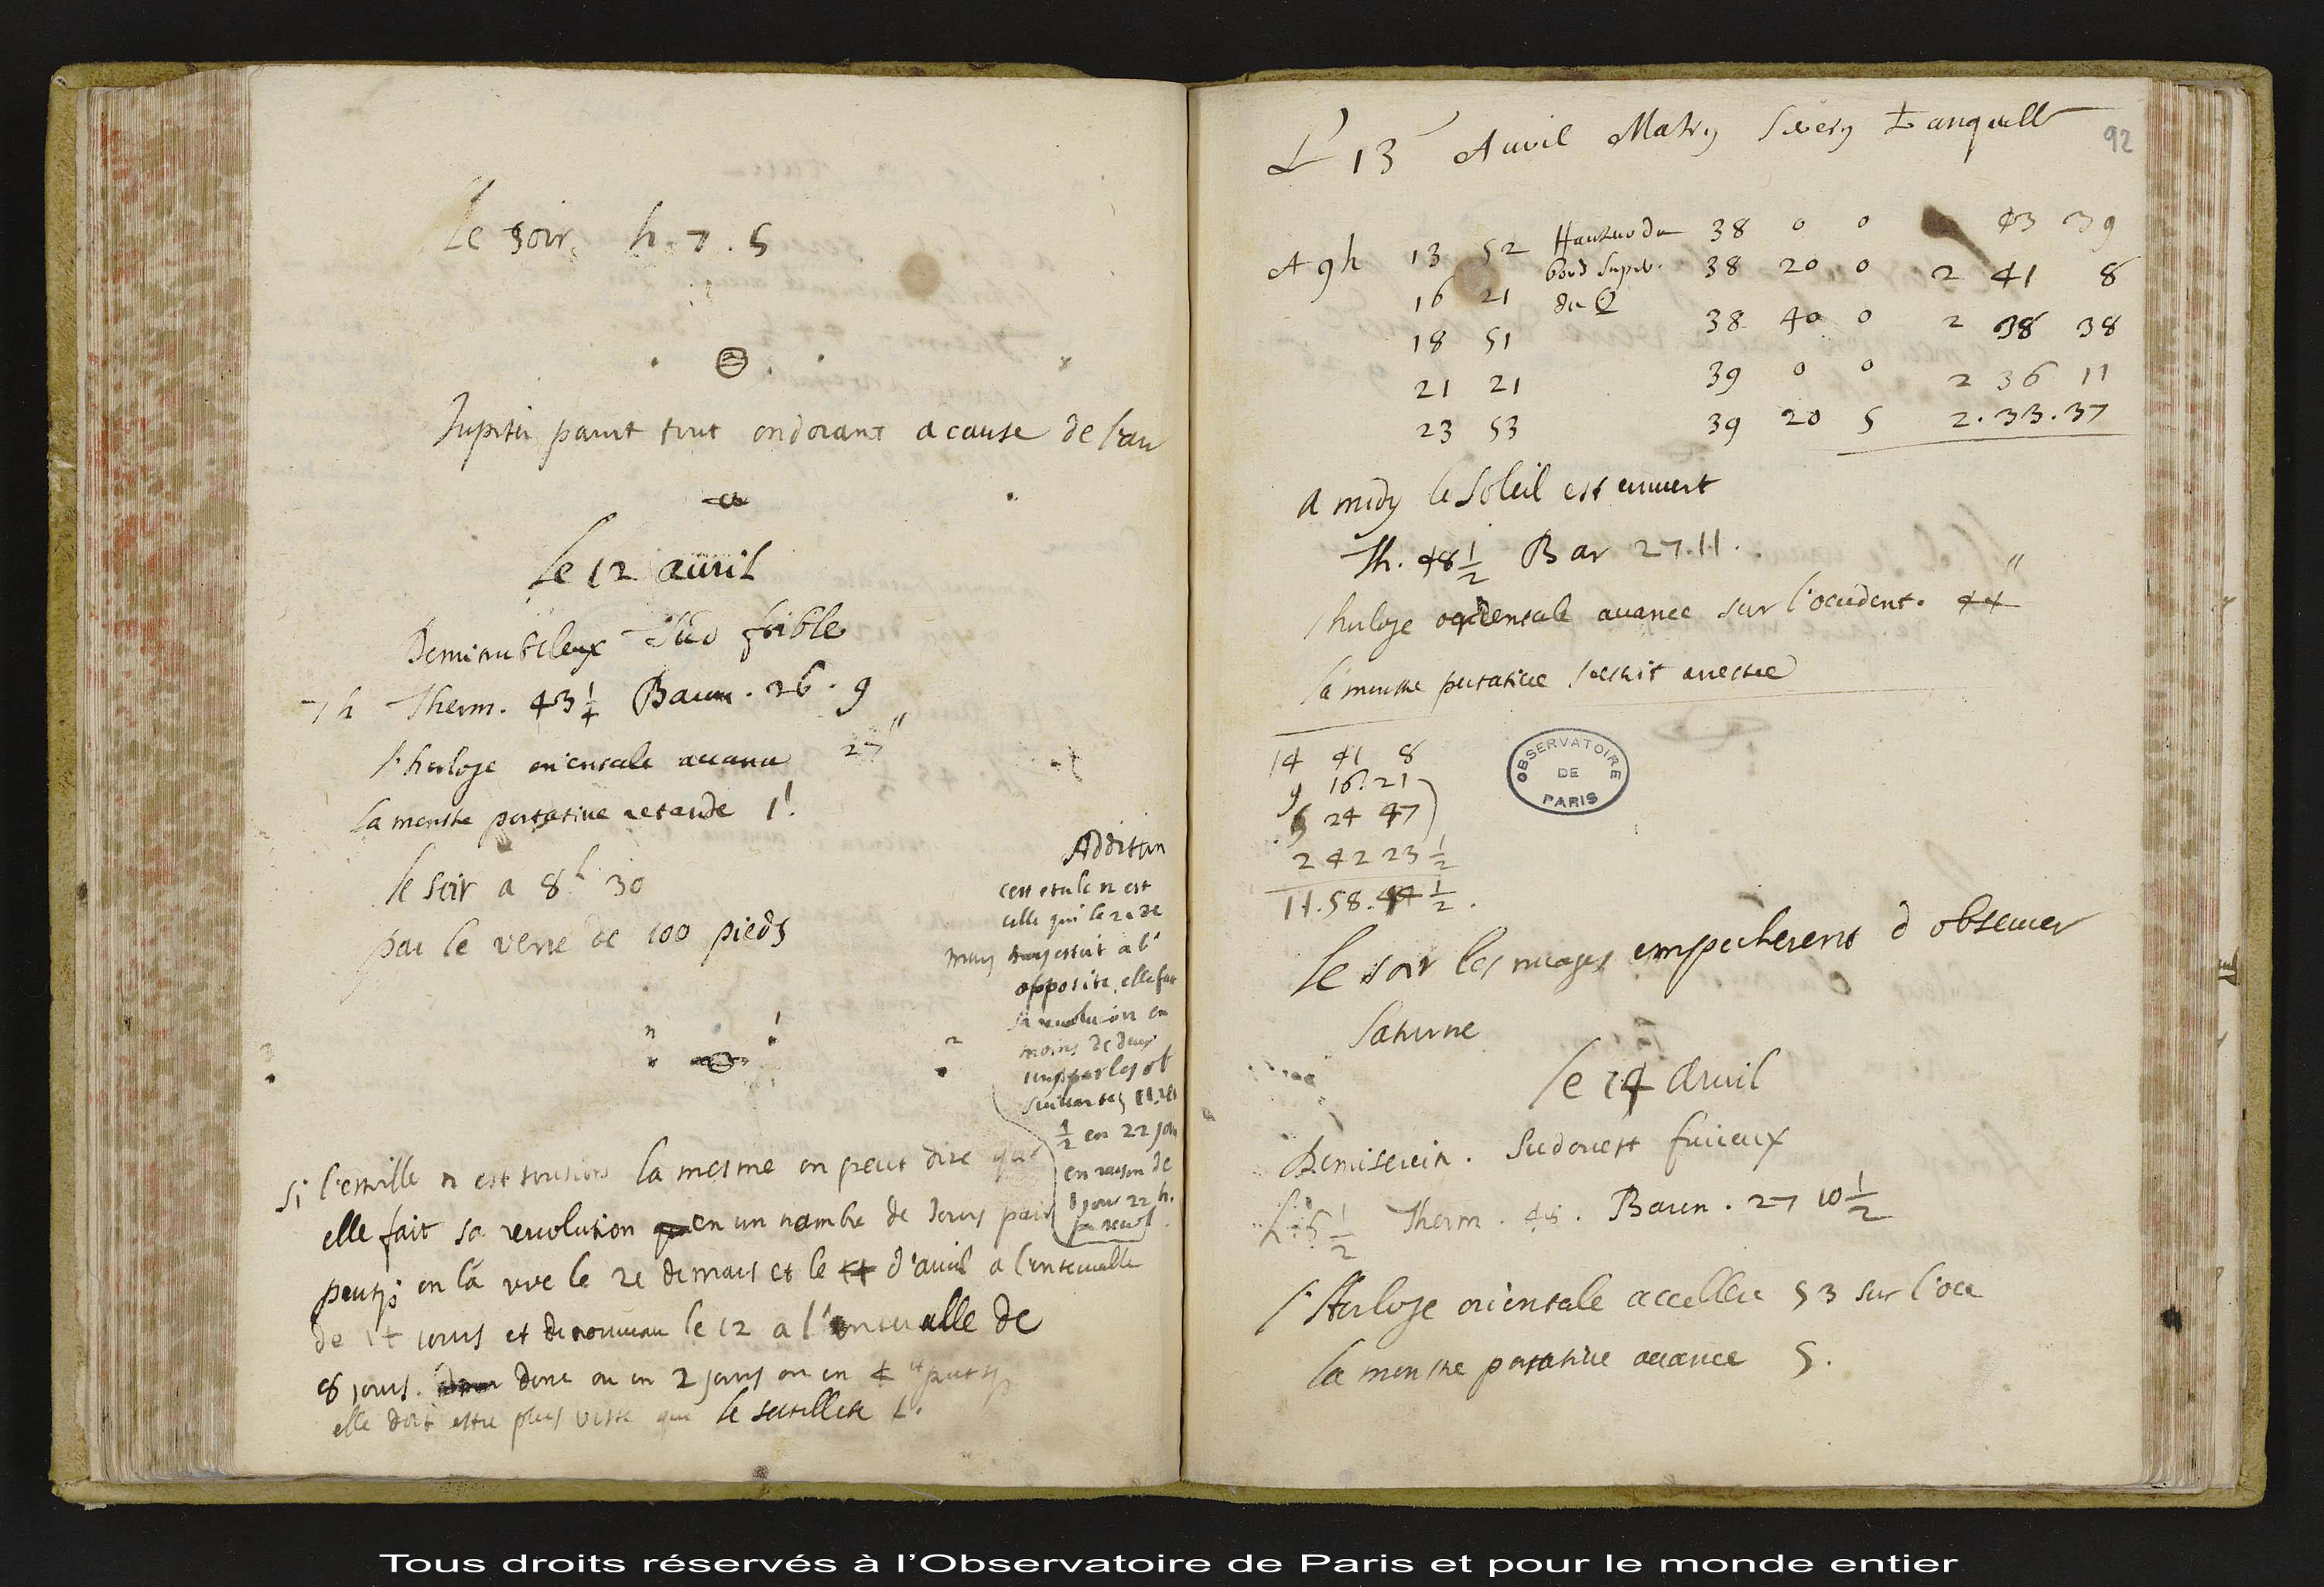 Le soir. h. 7. 5
Jupiter parut tout ondoiant a cause de l'air
le 12 auril
Demi nubileux Sud foible
7 h Therm. 43 1/4 Barom. 26. 9
l'horloge orientale auance 27"
la monstre portatiue retarde 1'.
le soir a 8h 30
par le verre de 100 pieds
n 1
2
Addition
cest etoile n est
celle qui le 2e de
mars estoit a l'
opposite, elle fait
sa reuolution en
moins de deux
jours par les ob
suiuantes 11. reu
1/2 en 22 jou
en raison de
jour 22 h.
par reuol.
si l'estoille n est tousiours la mesme on peut dire que
elle fait sa reuolution en un nombre de jours pair
on l'a vue le 2e de mars et le 4 d'auril a l'interualle
de jours et de nouueau le 12 a l'interualle de
8 jours. donc ou en 2 jours ou en 4
elle doit estre plus viste que le satellite
92
L 13 Auril Matin serein tranquille
A 9h 13 52 Hauteur du 38 0 0 43 39
16 21 bord super. 38 20 0 2 41 8
18 51 du 38 40 0 2 38 38
21 21 39 0 0 2 36 11
23 53 39 20 5 2. 33. 37
a midy le Soleil est couuert
Th. 48 1/2 Bar 27. 11.
l'horloge orientale auance sur l'occident. 44"
la monstre portatiue s'estoit arrestee
14 41 8
9 16. 21
5 24 47
2 42 23 1/2
11. 58. 44 1/2.
OBSERVATOIRE
DE
PARIS
le soir les nuages empecherent d obseruer
saturne
le 14 Auril
Demiserein. Sudouest furieux
h. 5 1/2 Therm. 48. Barom. 27 10 1/2
l'Horloge orientale accellere 53 sur l'occ
la monstre portatiue auance 5.
Tous droits réservés à l'Observatoire de Paris et pour le monde entier